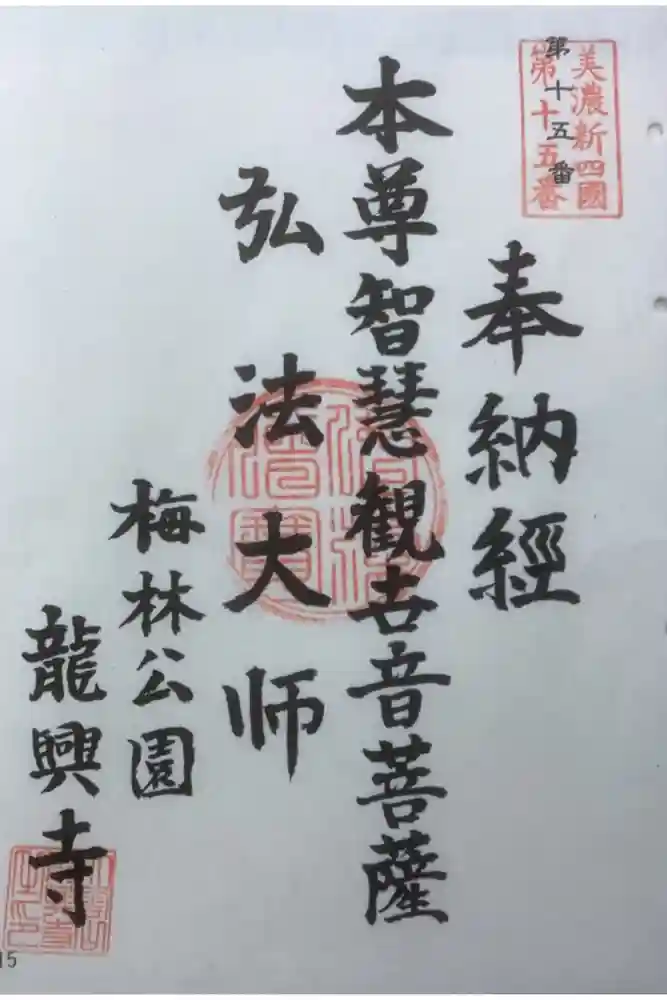 美濃新四國
第十五番
第十五番
奉納經
本尊智慧観卋音菩薩
弘法大师
梅林公園
龍興寺
15